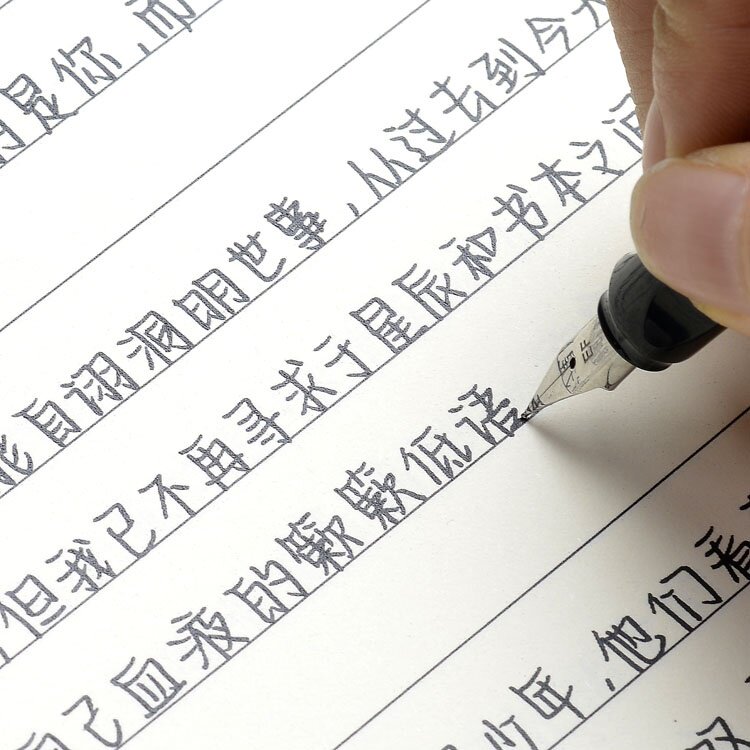 是你，而
能自诩洞明世事，从过去到今
但我已不再寻求于星辰和书本之间
自己血液的簌簌低语
少年，他们看
EF